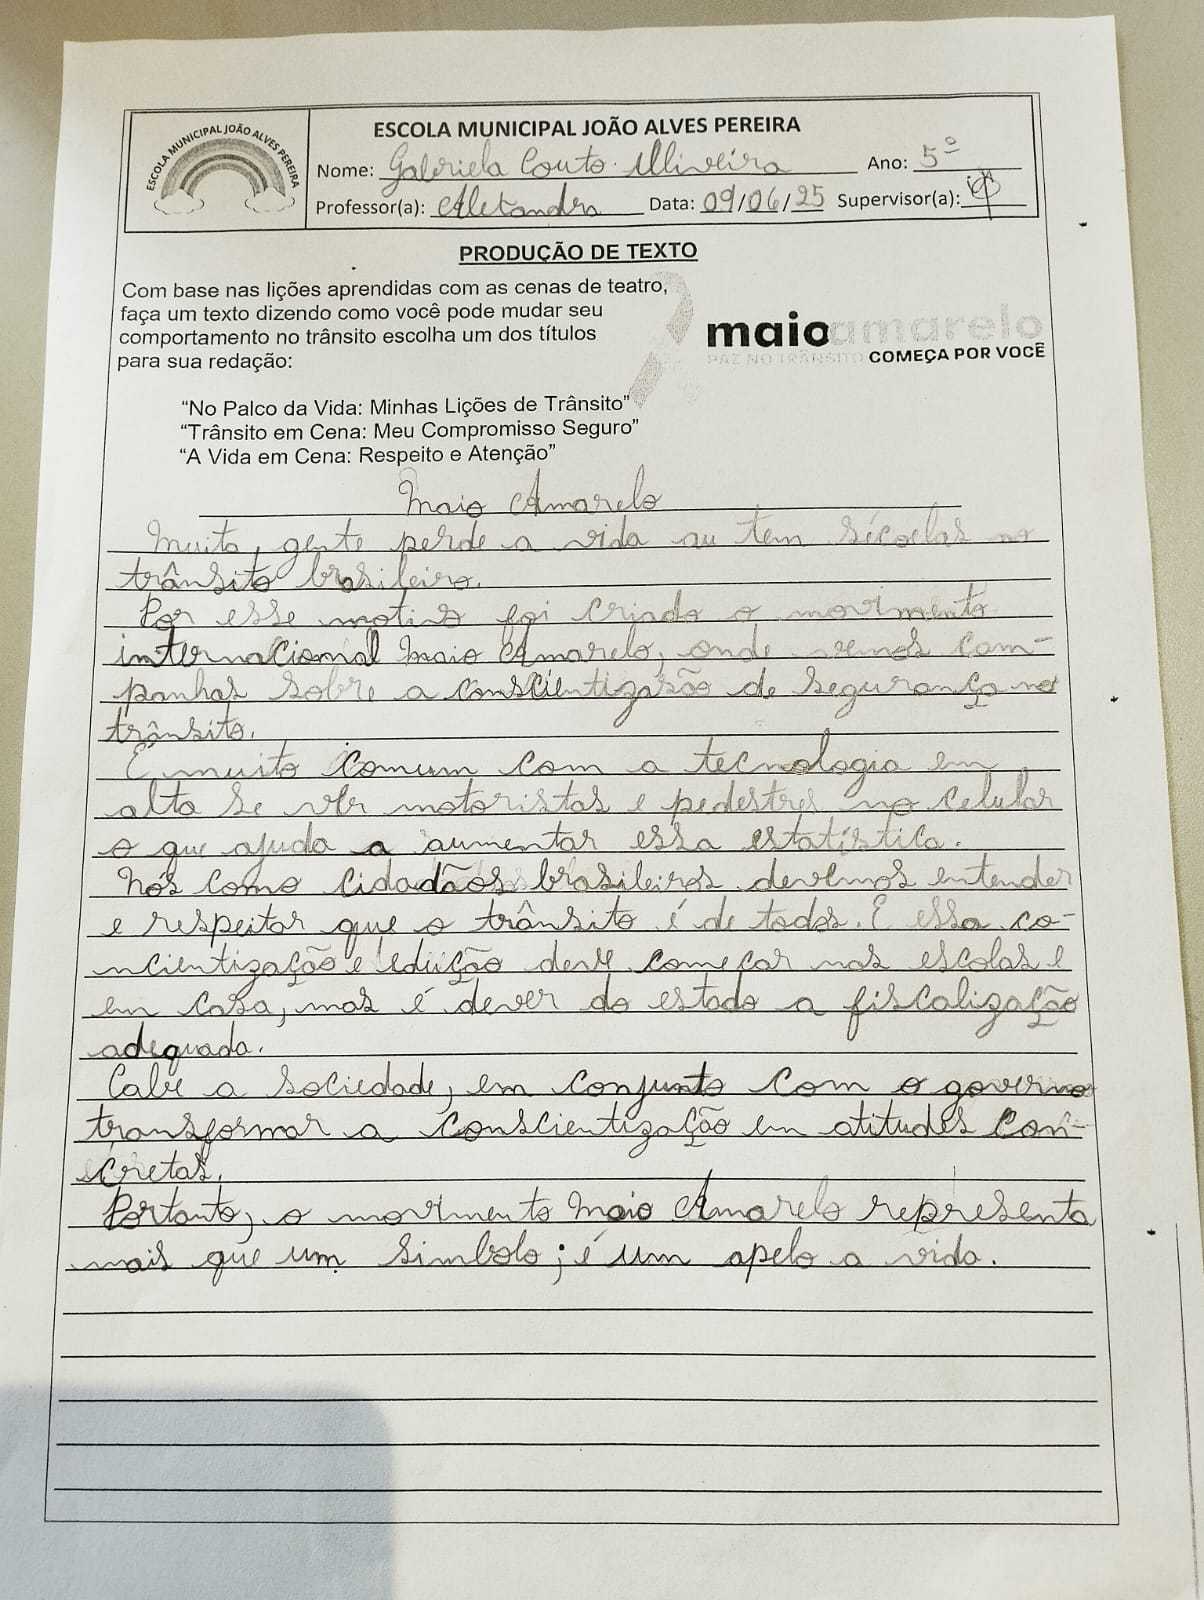 ESCOLA MUNICIPAL JOÃO ALVES PEREIRA
ESCOLA MUNICIPAL JOÃO ALVES PEREIRA
Nome: Gabriela Couto Oliveira Ano: 5º
Professor(a): Aletandra Data: 09/06/25 Supervisor(a):
PRODUÇÃO DE TEXTO
Com base nas lições aprendidas com as cenas de teatro,
faça um texto dizendo como você pode mudar seu
comportamento no trânsito escolha um dos títulos
para sua redação:
maio amarelo
PAZ NO TRÂNSITO COMEÇA POR VOCÊ
"No Palco da Vida: Minhas Lições de Trânsito"
"Trânsito em Cena: Meu Compromisso Seguro"
"A Vida em Cena: Respeito e Atenção"
Maio Amarelo
Muita, gente perde a vida ou tem sécoelas no
trânsito brasileiro.
Por esse motivo foi criado o movimento
internacional Maio Amarelo, onde vemos cam-
panhas sobre a conscientização de segurança no
trânsito.
É muito comum com a tecnologia em
alta se ver motoristas e pedestres no celular
o que ajuda a aumentar essa estatística.
Nós como cidadãos brasileiros devemos entender
e respeitar que o trânsito é de todos. E essa co-
ncientização e edução deve começar nas escolas e
em casa, mas é dever do estado a fiscalização
adequada.
Cabe a sociedade, em conjunto com o governo
transformar a conscientização em atitudes con-
cretas.
Portanto, o movimento Maio Amarelo representa
mais que um simbolo; é um apelo a vida.